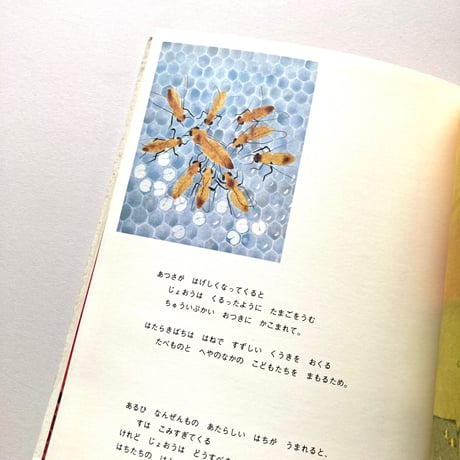 あつさが はげしくなってくると
じょおうは くるったように たまごをうむ
ちゅういぶかい おつきに かこまれて。
はたらきばちは はねで すずしい くうきを おくる
たべものと へやのなかの こどもたちを まもるため。
あるひ なんぜんもの あたらしい はちが うまれると、
すは こみすぎてくる
けれど じょおうは どうすべ
はちたちの は